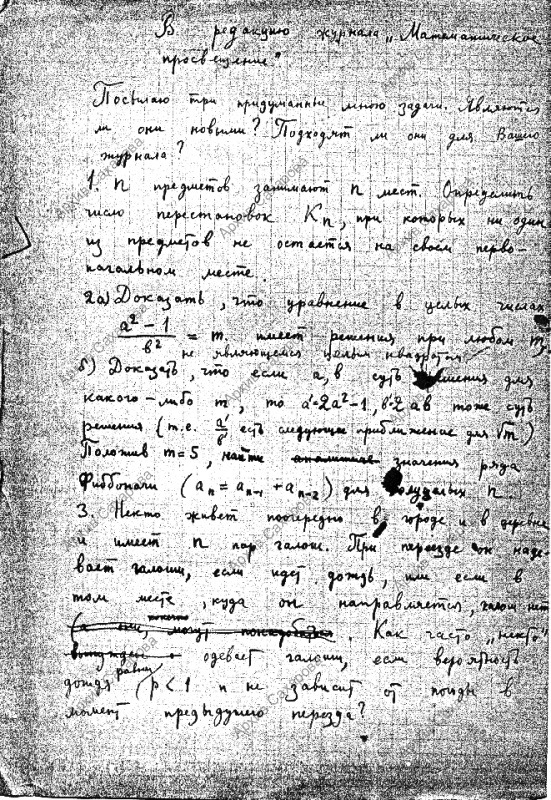 В редакцию журнала „Математическое
просвещение"
Посылаю три придуманные мною задачи. Являются
ли они новыми? Подходят ли они для Вашего
журнала?
1. n предметов занимают n мест. Определить
число перестановок Kn, при которых ни один
из предметов не остается на своем перво-
начальном месте.
2а) Доказать, что уравнение в целых числах
a² - 1 / b² = m. имеет решения при любом m,
не являющемся целым квадратом
б) Доказать, что если a, b суть решения для
какого-либо m, то a' = 2a² - 1, b' = 2ab тоже суть
решения (т.е. a'/b' есть следующее приближение для √m)
Положив m = 5, найти значения ряда
Фиббоначи (aₙ = aₙ₋₁ + aₙ₋₂) для полуцелых n.
3. Некто живет поочередно в городе и в деревне
и имеет n пар галош. При переезде он наде-
вает галоши, если идет дождь, или если в
том месте, куда он направляется, галош нет
. Как часто „некто"
одевает галоши, если вероятность
дождя равна p < 1 и не зависит от погоды в
момент предыдущего переезда?
Архив Сахарова